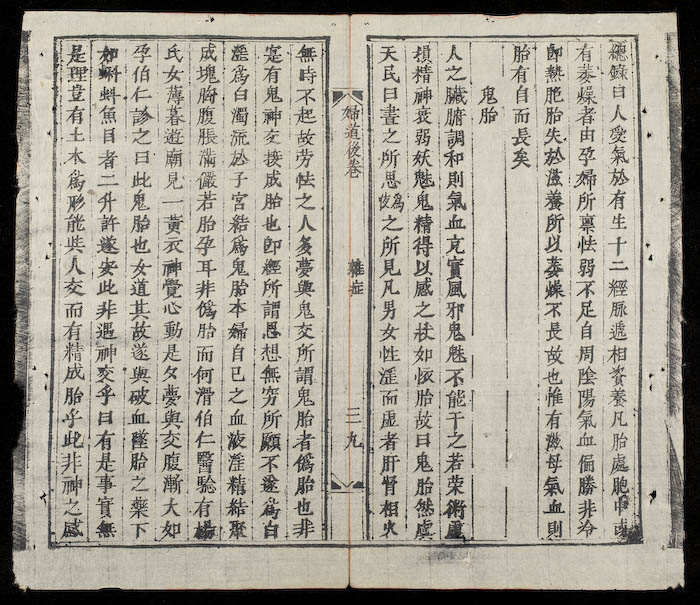 總錄曰人受氣於有生十二經脉遞相資養凡胎處胞中或
有萎燥者由孕婦所稟怯弱不足自周陰陽氣血偏勝非冷
即熱胞胎失於滋養所以萎燥不長故也惟有滋母氣血則
胎有自而長矣
鬼胎
人之臟腑調和則氣血充實風邪鬼魅不能干之若荣衛虛
損精神衰弱妖魅鬼精得以感之狀如懷胎故曰鬼胎然虞
天民曰晝之所思為夜之所見凡男女性淫而虛者肝腎相火
婦道後卷
雜症
三九
無時不起故劳怯之人多夢與鬼交所謂鬼胎者偽胎也非
寔有鬼神交接成胎也即經所謂思想無穷所願不遂為白
淫為白濁流於子宮結為鬼胎本婦自己之血液淫精結聚
成塊胸腹脹滿儼若胎孕耳非偽胎而何滑伯仁醫驗有楊
氏女薄暮遊廟見一黃衣神覺心動是夕夢與交腹漸大如
孕伯仁診之曰此鬼胎也女道其故遂與破血墜胎之藥下
如蝌蚪魚目者二升許遂安此非遇神交乎曰有是事實無
是理豈有土木為形能與人交而有精成胎乎此非神之感